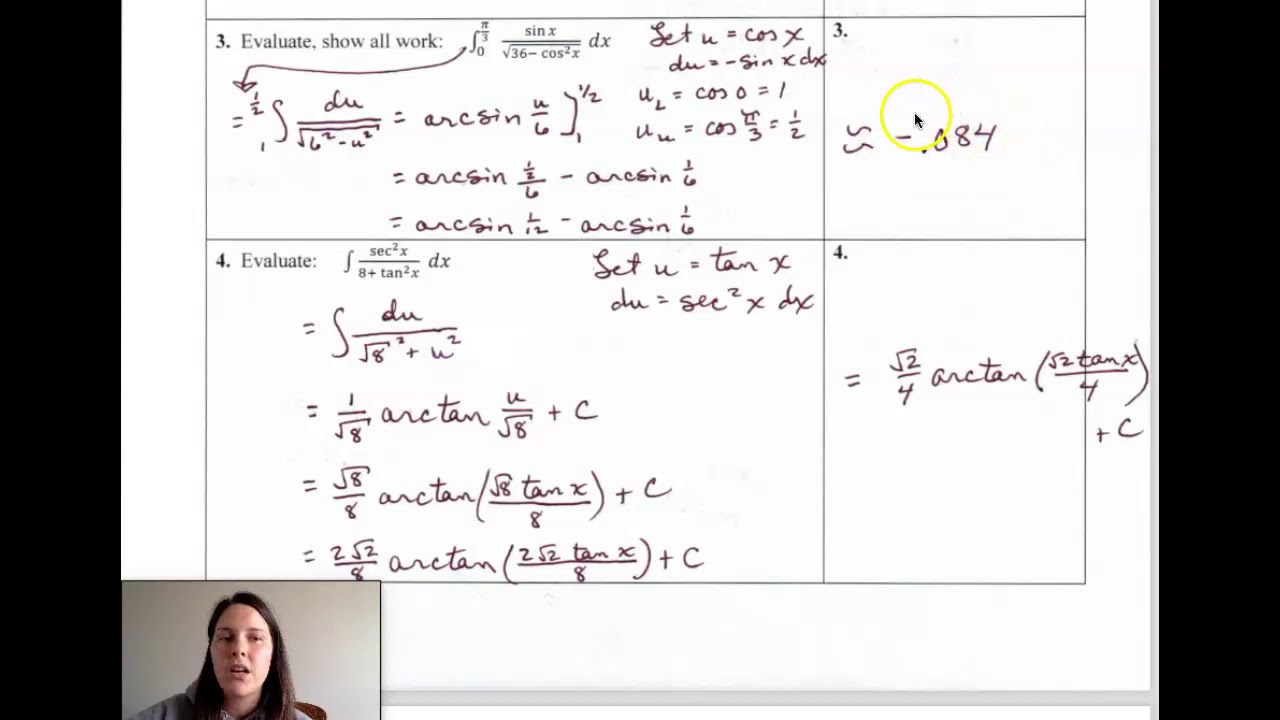 3. Evaluate, show all work: ∫₀^(π/3) sin x / √(36 − cos²x) dx
Set u = cos x
du = -sin x dx
u_L = cos 0 = 1
u_u = cos π/3 = 1/2
= ∫₁^(1/2) du / √(6² - u²) = arcsin u/6 ]₁^(1/2)
= arcsin (1/2)/6 - arcsin 1/6
= arcsin 1/12 - arcsin 1/6
3.
≈ -.084
4. Evaluate: ∫ sec²x / (8 + tan²x) dx
Set u = tan x
du = sec² x dx
= ∫ du / (√8² + u²)
= 1/√8 arctan u/√8 + C
= √8/8 arctan (√8 tan x / 8) + C
= 2√2/8 arctan (2√2 tan x / 8) + C
4.
= √2/4 arctan (√2 tan x / 4)
+ C